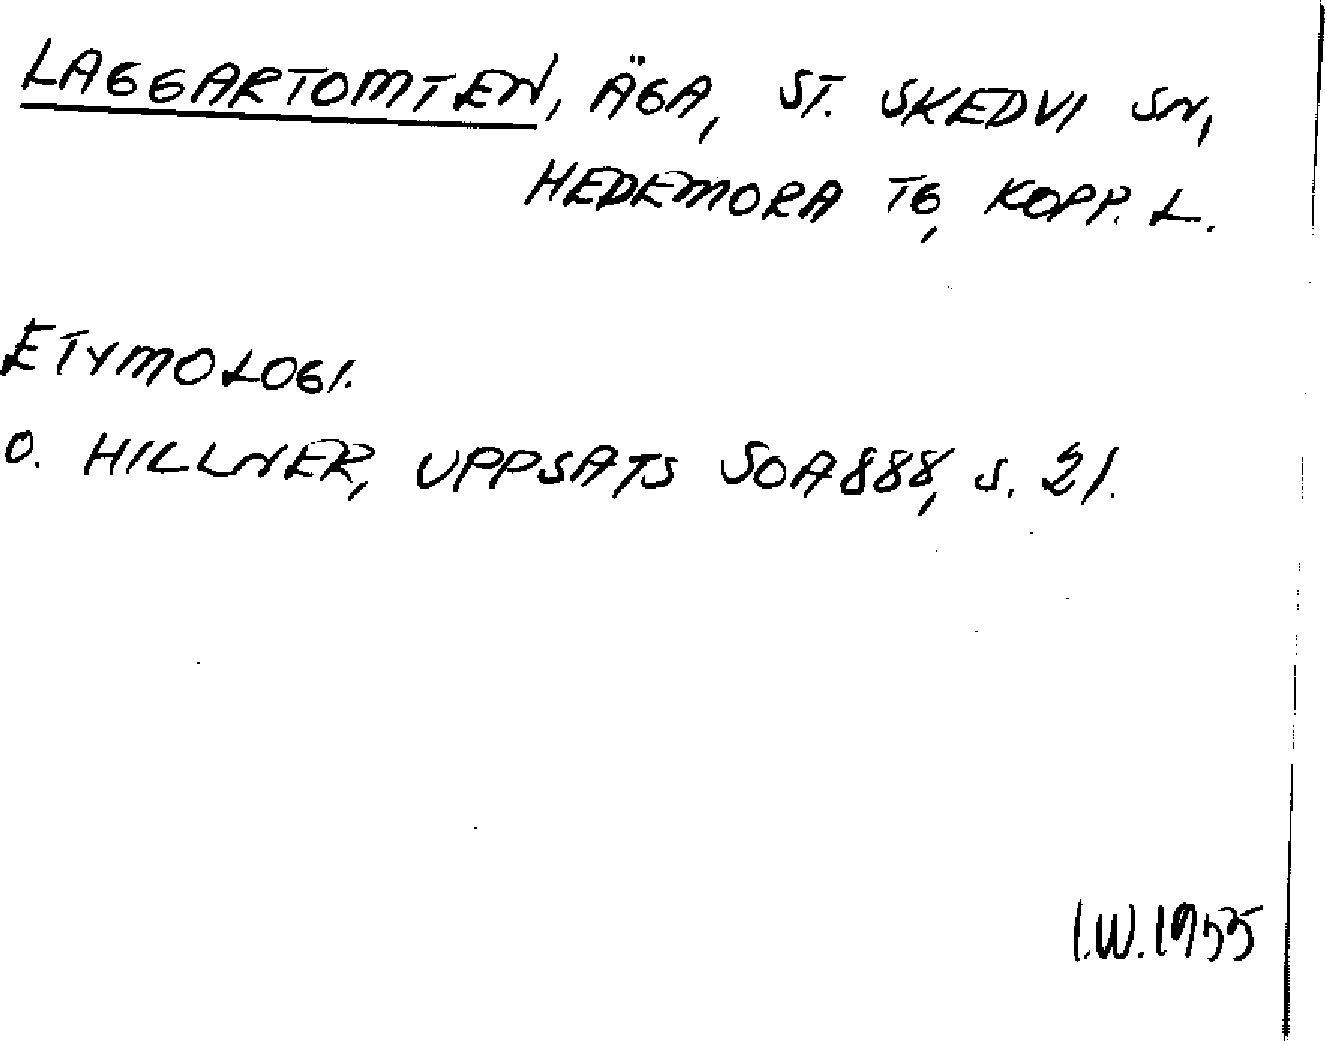 LAGGARTOMTEN, ÄGA, ST. SKEDVI SN,
HEDEMORA TG, KOPP. L.
ETYMOLOGI.
O. HILLNER, UPPSATS SOA888, S. 21.
I.W. 1955